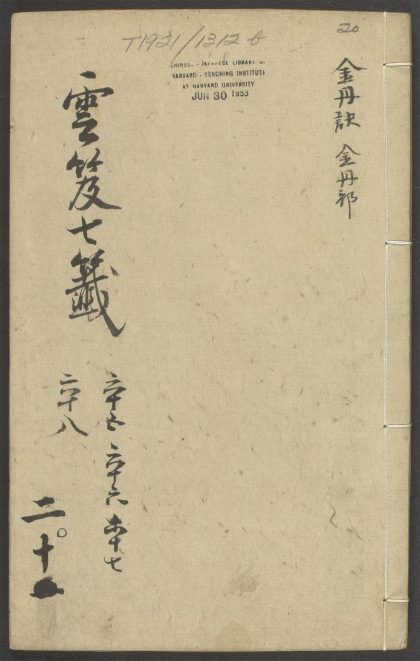 20
T1921/1312 b
CHINESE - JAPANESE LIBRARY
HARVARD - YENCHING INSTITUTE
AT HARVARD UNIVERSITY
JUN 30 1953
金丹訣 金丹部
雲笈七籤
六十五 六十六 六十七
六十八
二十